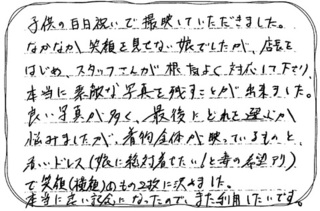 子供の百日祝いで撮影していただきました。
なかなか笑顔を見せない娘でしたが、店長を
はじめ、スタッフさんが根気よく対応して下さり、
本当に素敵な写真を残すことが出来ました。
良い写真が多く、最後にどれを選ぶか
悩みましたが、着物全体が映っているものと、
赤いドレス(娘に絶対着せたい!と妻の希望アリ)
で笑顔()のもの2枚に決めました。
本当に良い記念になったので、また利用したいです。